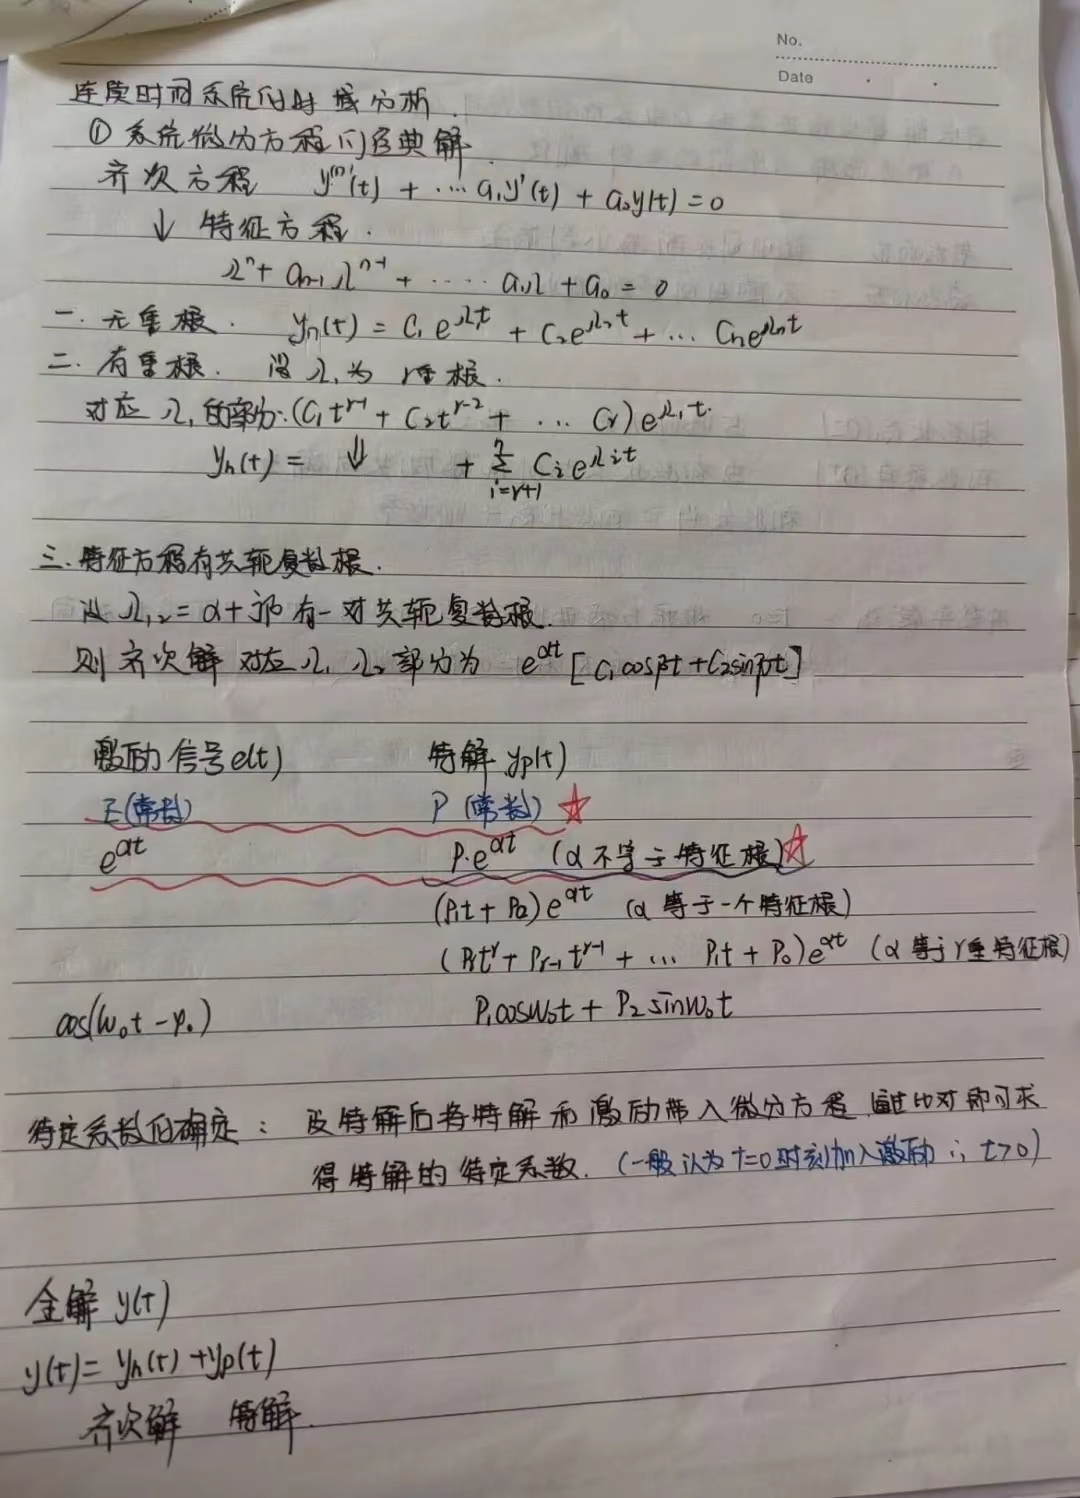 No.
Date
连续时间系统的时域分析.
① 系统微分方程的经典解.
齐次方程 y⁽ⁿ⁾(t) + … a₁y'(t) + a₀y(t) = 0
↓ 特征方程.
λⁿ + aₙ₋₁λⁿ⁻¹ + ····· a₁λ + a₀ = 0
一. 无重根. yₙ(t) = C₁e^λ₁t + C₂e^λ₂t + … Cₙe^λₙt
二. 有重根. 设λ₁为r重根.
对应λ₁的部分:(C₁t^r-1 + C₂t^r-2 + … Cr)e^λ₁t.
yₕ(t) = ↓ + Σ(i=r+1, n) Cᵢe^λᵢt
三. 特征方程有共轭复数根.
设λ₁,₂ = α + jβ 有一对共轭复数根.
则齐次解对应λ₁ λ₂部分为 e^αt [C₁cosβt + C₂sinβt]
激励信号e(t) 特解yp(t)
E(常数) P(常数) ☆
e^αt P·e^αt (α不等于特征根) ☆
(P₁t + P₂)e^αt (α等于一个特征根)
(Prt^r + Pr-1t^r-1 + … P₁t + P₀)e^αt (α等于r重特征根)
cos(ω₀t - φ₀) P₁cosω₀t + P₂sinω₀t
待定系数的确定: 设特解后将特解和激励带入微分方程 通过比对即可求
得特解的待定系数. (一般认为t=0时刻加入激励 ∴ t>0)
全解 y(t)
y(t) = yₕ(t) + yp(t)
齐次解 特解.